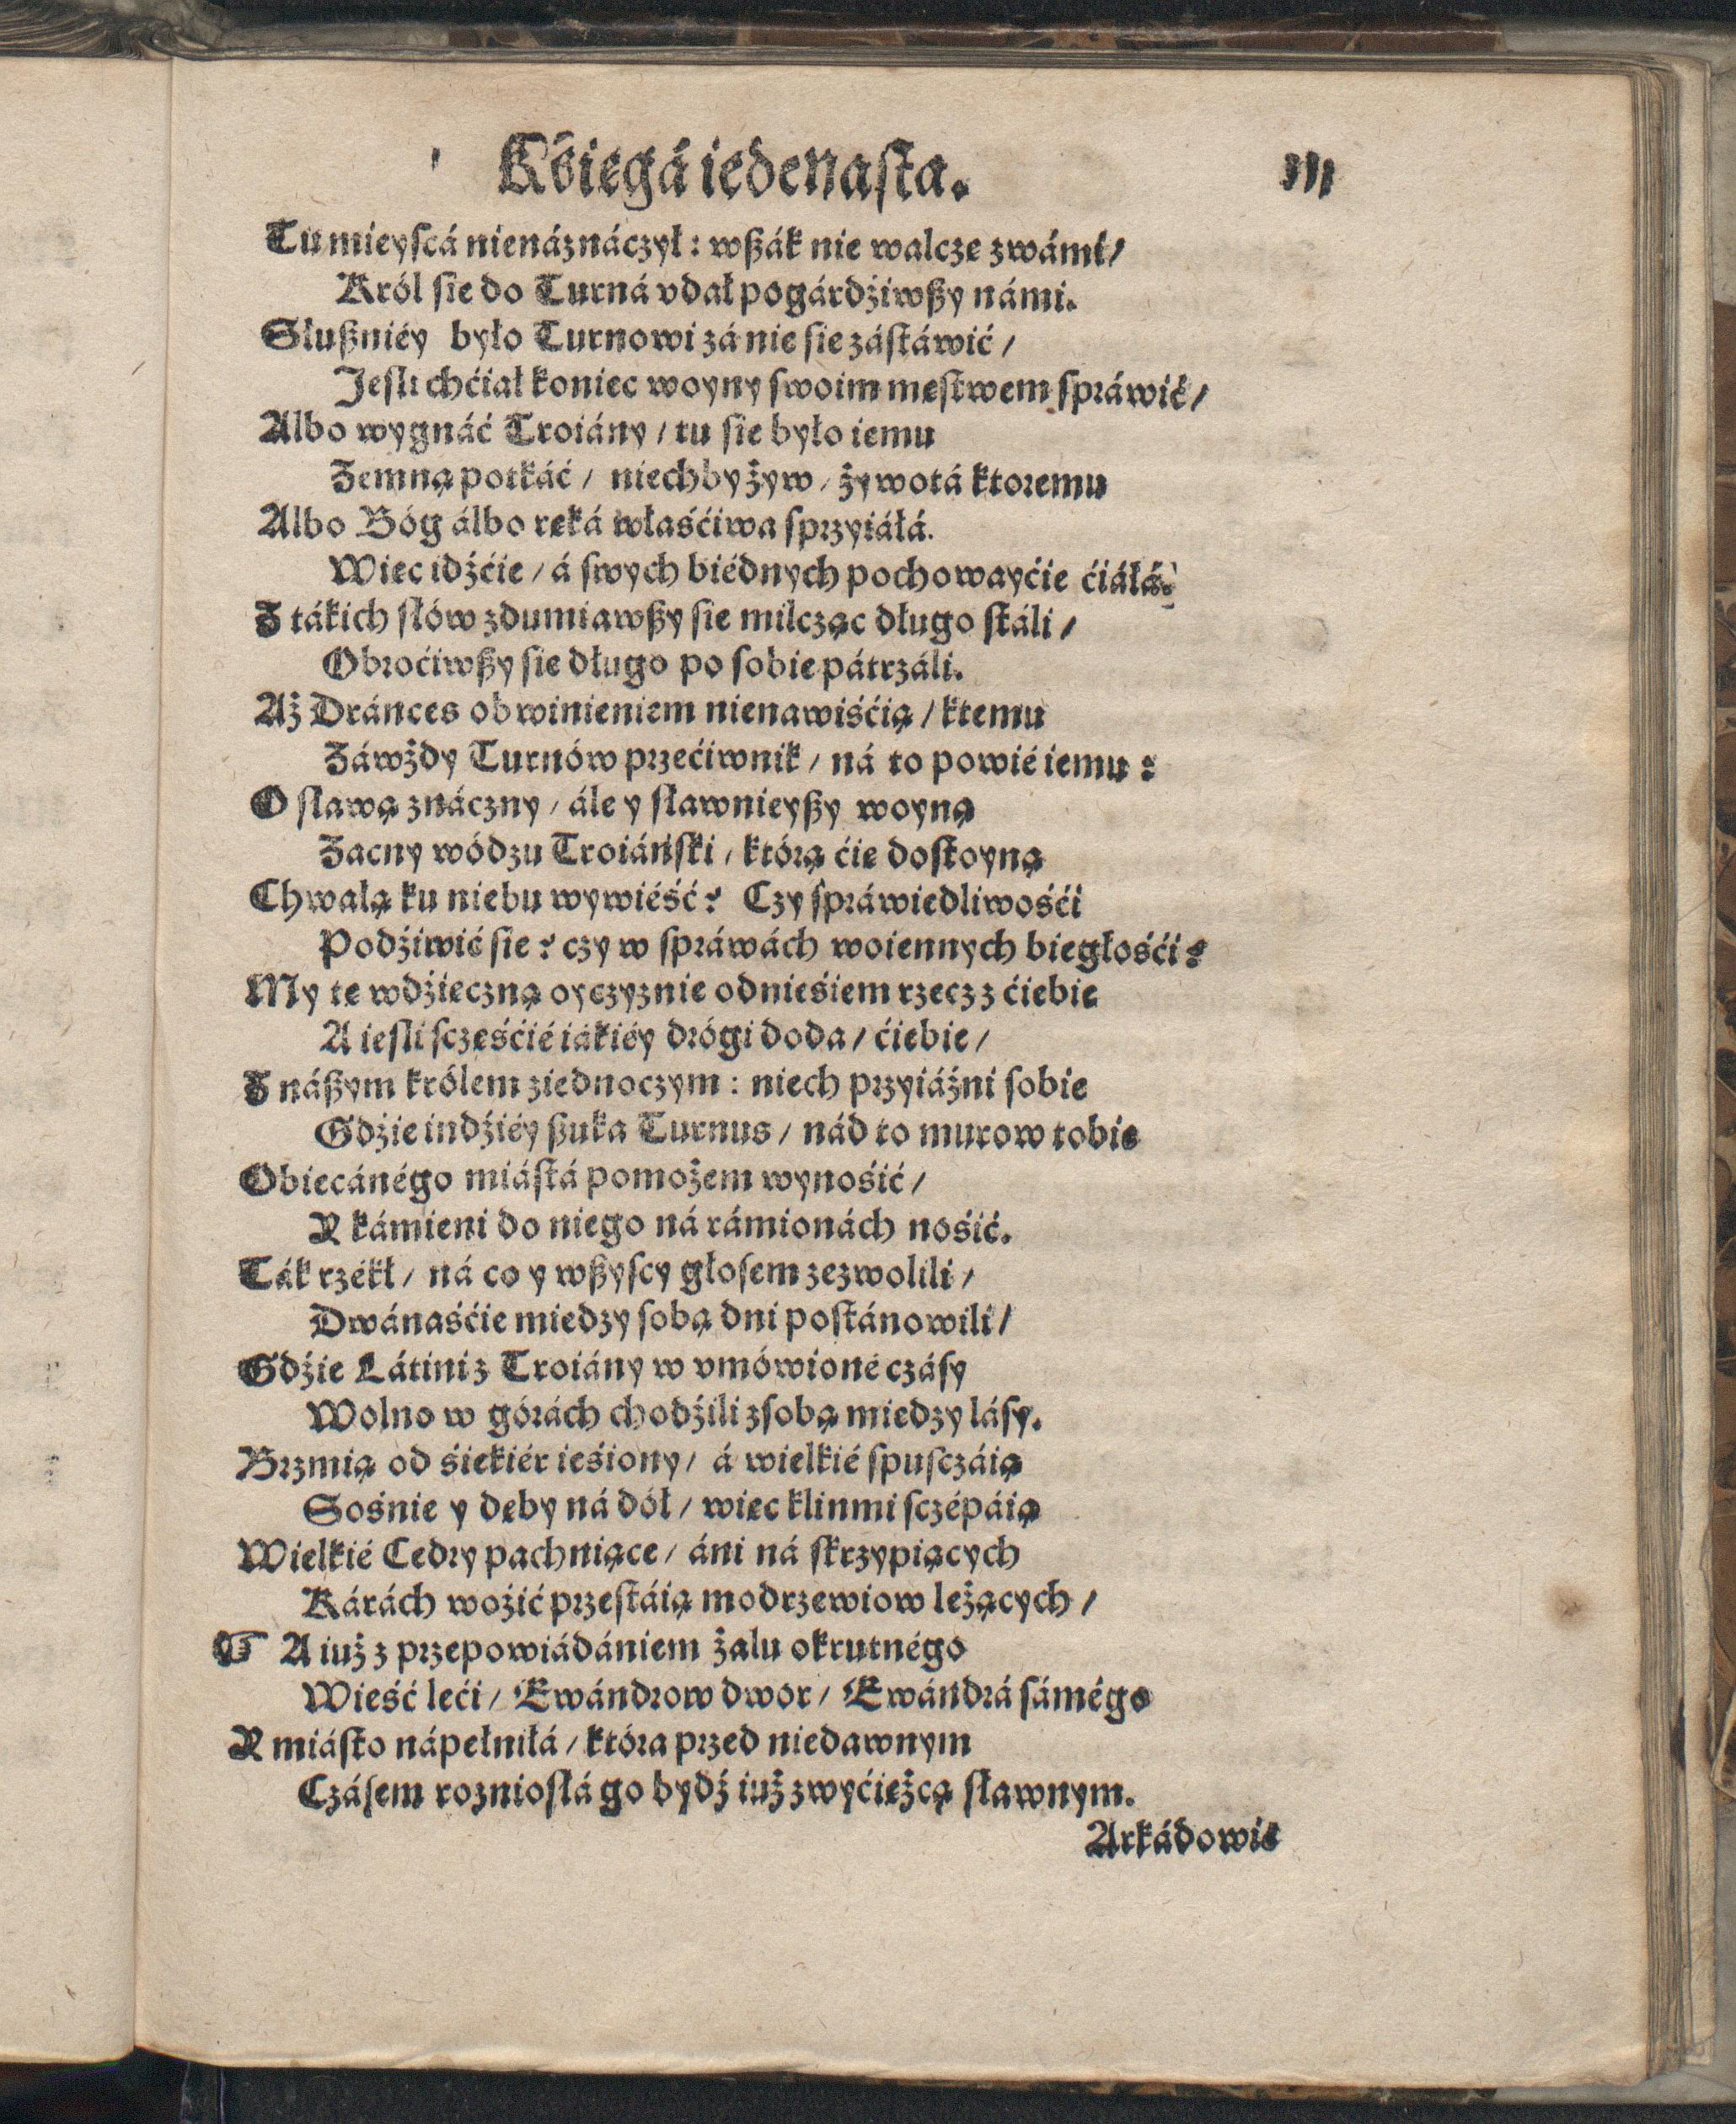 Kśięgá iedenaſta.
Tu mieyſcá nienáznáczył: wßák nie walczę zwámi/
Król ſie do Turná vdał pogárdźiwßy námi.
Słußniéy było Turnowi zá nie ſie záſtáwić/
Jeſli chćiał koniec woyny ſwoim męſtwem ſpráwić/
Albo wygnáć Troiány/ tu ſie było iemu
Zemną potkáć/ niechby żyw/ żywotá ktoremu
Albo Bóg álbo ręká właśćiwa ſprzyiáłá.
Więc idźćie/ á ſwych biédnych pochowayćie ćiáłá.
Z tákich ſłów zdumiawßy ſie milcząc długo ſtáli/
Obroćiwßy ſie długo po ſobie pátrzáli.
Aż Dránces obwinieniem nienawiśćią/ ktemu
Záwżdy Turnów przećiwnik/ ná to powié iemu:
O ſławą znáczny/ ále y ſławnieyßy woyną
Zacny wódzu Troiáńſki/ którą ćię doſtoyną
Chwałą ku niebu wywiéść? Czy ſpráwiedliwośći
Podźiwić ſie? czy w ſpráwách woiennych biegłośći?
My tę wdźięczną oyczyznie odnieśiem rzecz z ćiebie
A ieſli ſczęśćié iákiéy drógi doda/ ćiebie/
Z náßym królem ziednoczym: niech przyiáźni ſobie
Gdźie indźiéy ßuka Turnus/ nád to murow tobie
Obiecánégo miáſtá pomożem wynośić/
Y kámieni do niego ná rámionách nośić.
Ták rzékł/ ná co y wßyſcy głoſem zezwolili/
Dwánaśćie miedzy ſobą dni poſtánowili/
Gdźie Látini z Troiány w vmówioné czáſy
Wolno w górách chodźili zſobą miedzy láſy.
Brzmią od śiekiér ieśiony/ á wielkié ſpuſczáią
Sośnie y dęby ná dół/ więc klinmi ſczépáią
Wielkié Cedry pachniące/ áni ná ſkrzypiących
Kárách woźić przeſtáią modrzewiow leżących/
☞ A iuż z przepowiádániem żalu okrutnégo
Wieść leći/ Ewándrow dwor/ Ewándrá ſámégo
Y miáſto nápełniłá/ która przed niedawnym
Czáſem roznioſłá go bydź iuż zwyćiężcą ſławnym.
Arkádowie